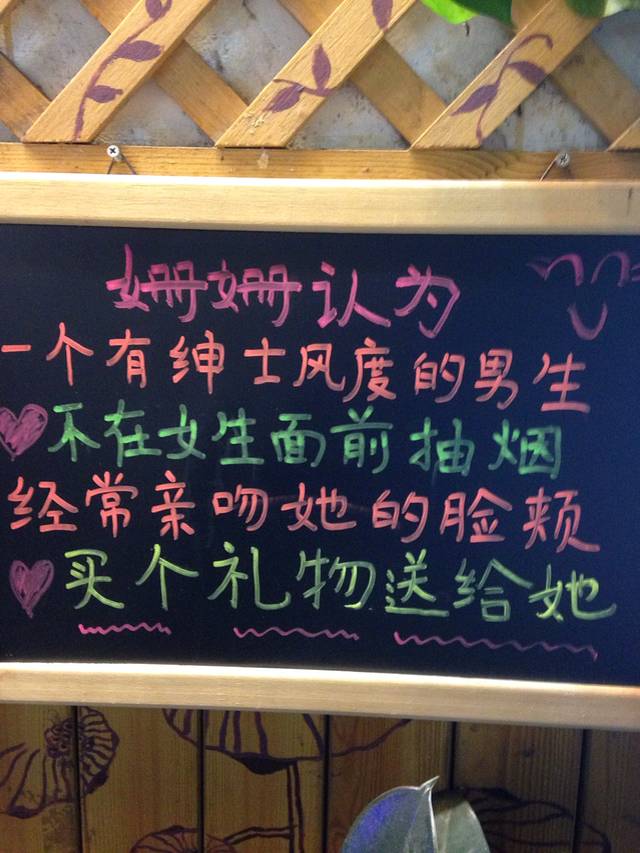 姗姗认为
一个有绅士风度的男生
不在女生面前抽烟
经常亲吻她的脸颊
买个礼物送给她